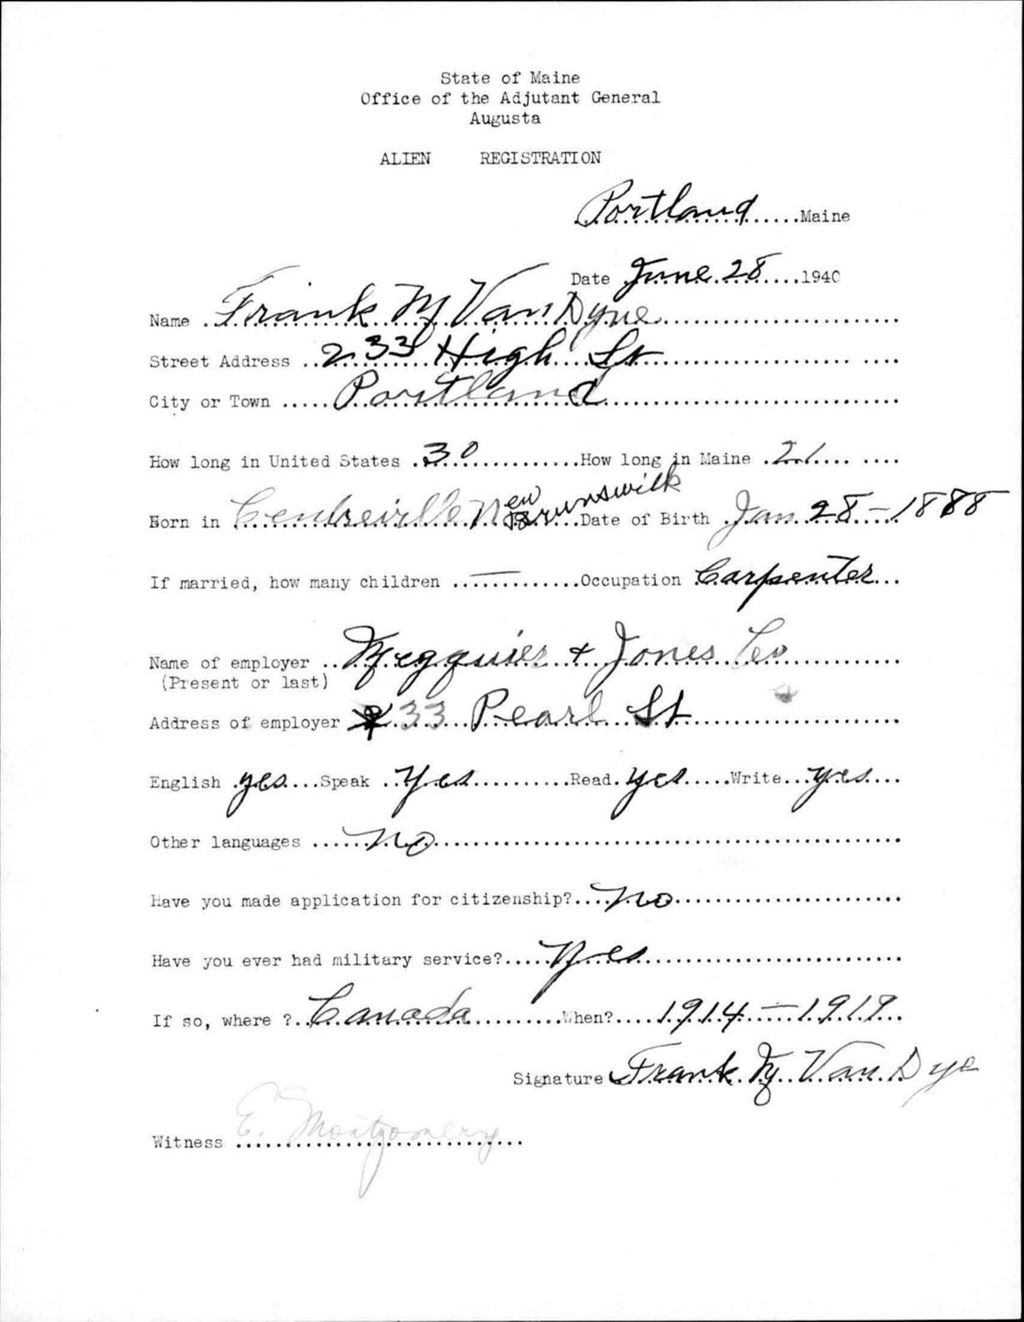 State of Maine
Office of the Adjutant General
Augusta
ALIEN REGISTRATION
Portland Maine
Date June 28 1940
Name Frank M Van Dyne
Street Address 233 High St
City or Town Portland
How long in United States 30 How long in Maine 21
Born in Centreville New Brunswick Date of Birth Jan 28 - 1888
If married, how many children — Occupation Carpenter
Name of employer Megquier + Jones Co
(Present or last)
Address of employer 33 Pearl St
English yes Speak Yes Read yes Write yes
Other languages No
Have you made application for citizenship? No
Have you ever had military service? Yes
If so, where ? Canada When? 1914 - 1919
Signature Frank M Van Dye
Witness E. Montgomery